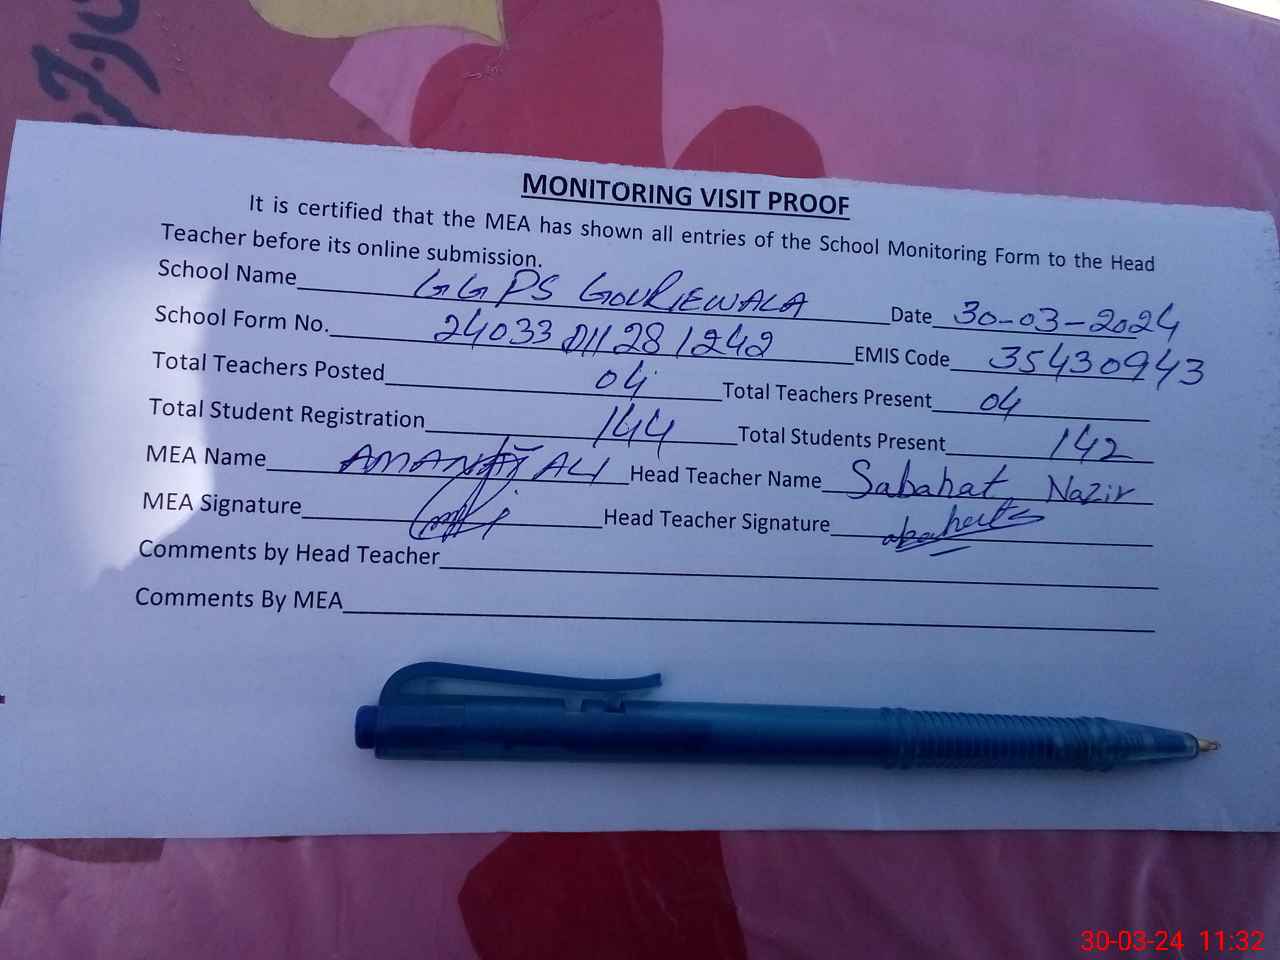 MONITORING VISIT PROOF
It is certified that the MEA has shown all entries of the School Monitoring Form to the Head
Teacher before its online submission.
School Name GGPS GOURIEWALA Date 30-03-2024
School Form No. 2403301128 1242 EMIS Code 35430943
Total Teachers Posted 04 Total Teachers Present 04
Total Student Registration 144 Total Students Present 142
MEA Name AMANAT ALI Head Teacher Name Sabahat Nazir
MEA Signature Head Teacher Signature
Comments by Head Teacher
Comments By MEA
30-03-24 11:32